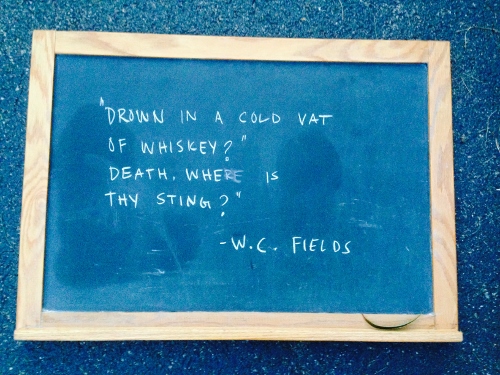 "DROWN IN A COLD VAT
OF WHISKEY?"
DEATH, WHERE IS
THY STING?"
-W.C. FIELDS